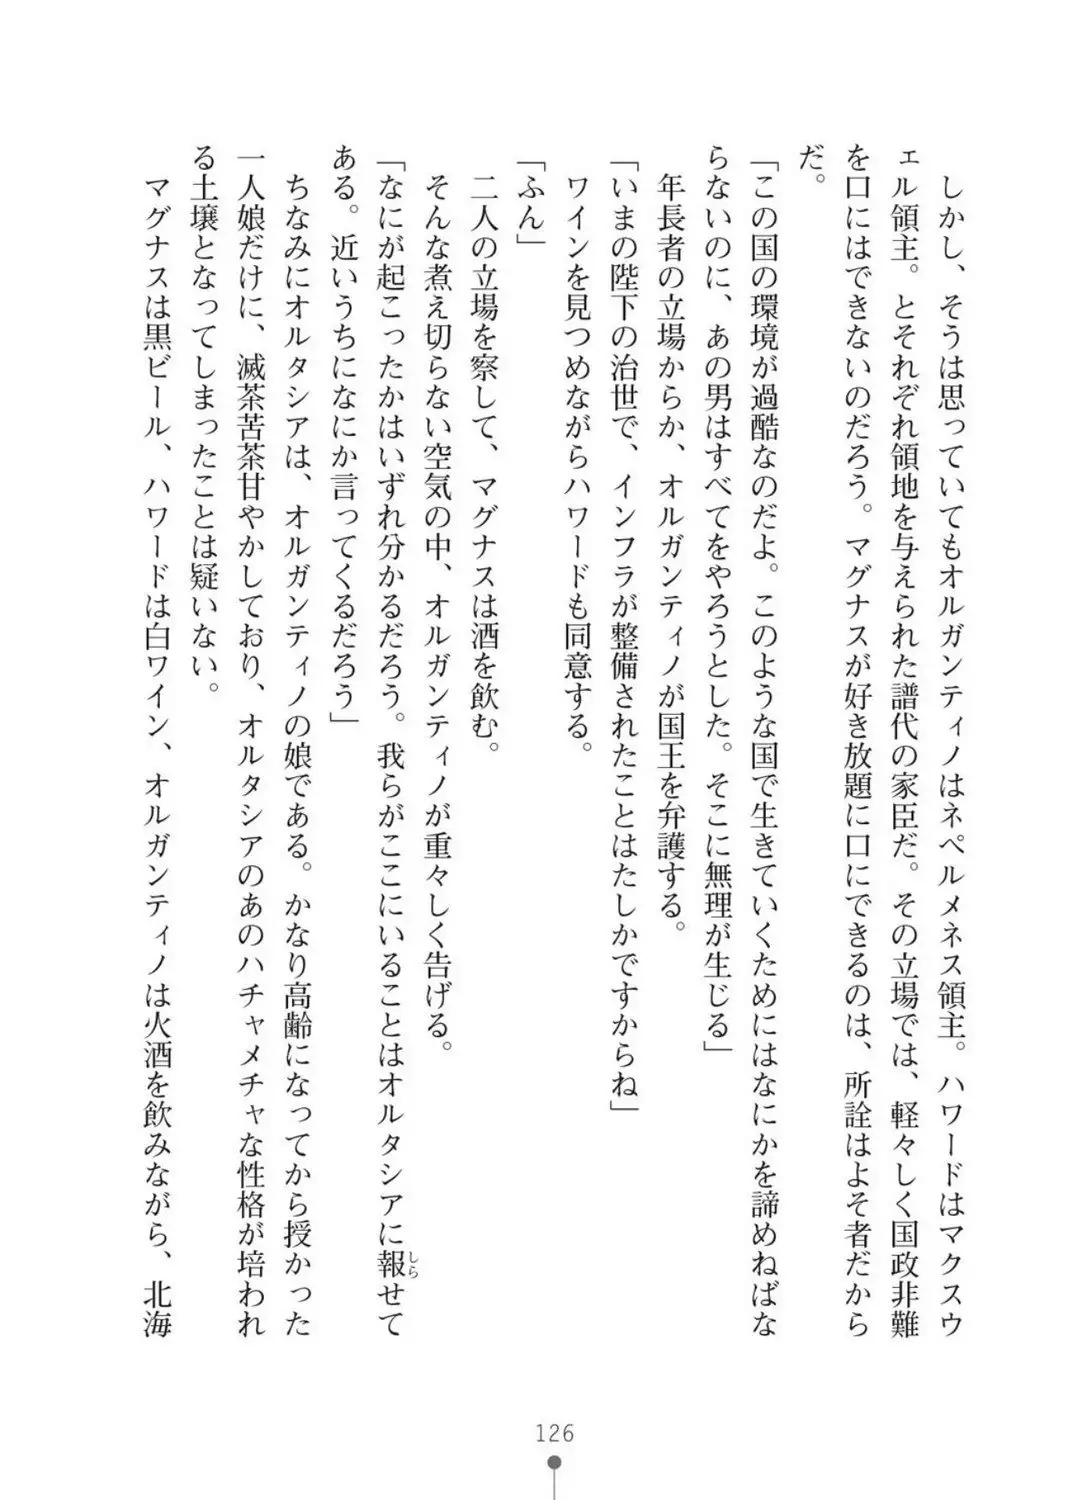 しかし、そうは思っていてもオルガンティノはネペルメネス領主。ハワードはマクスウ
ェル領主。とそれぞれ領地を与えられた譜代の家臣だ。その立場では、軽々しく国政非難
を口にはできないのだろう。マグナスが好き放題に口にできるのは、所詮はよそ者だから
だ。
「この国の環境が過酷なのだよ。このような国で生きていくためにはなにかを諦めねばな
らないのに、あの男はすべてをやろうとした。そこに無理が生じる」
年長者の立場からか、オルガンティノが国王を弁護する。
「いまの陛下の治世で、インフラが整備されたことはたしかですからね」
ワインを見つめながらハワードも同意する。
「ふん」
二人の立場を察して、マグナスは酒を飲む。
そんな煮え切らない空気の中、オルガンティノが重々しく告げる。
「なにが起こったかはいずれ分かるだろう。我らがここにいることはオルタシアに報しらせて
ある。近いうちになにか言ってくるだろう」
ちなみにオルタシアは、オルガンティノの娘である。かなり高齢になってから授かった
一人娘だけに、滅茶苦茶甘やかしており、オルタシアのあのハチャメチャな性格が培われ
る土壌となってしまったことは疑いない。
マグナスは黒ビール、ハワードは白ワイン、オルガンティノは火酒を飲みながら、北海
126